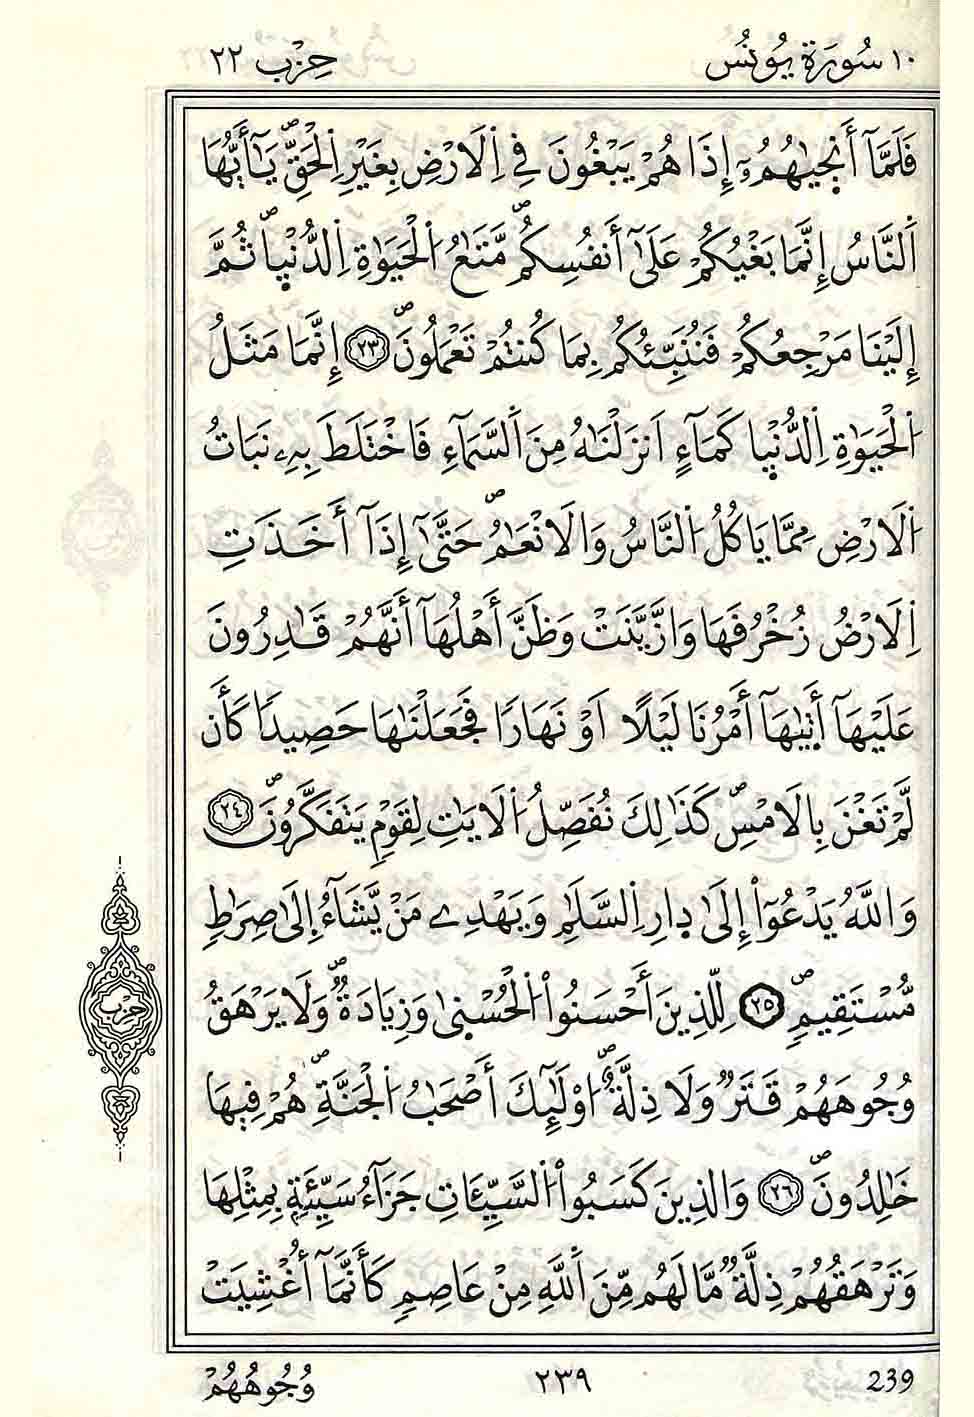 ١٠ سُورَةُ يُونُسَ حِزْب ٢٢
فَلَمَّآ أَنجَيٰهُمُۥٓ إِذَا هُمْ يَبْغُونَ فِے اِ۬لَارْضِ بِغَيْرِ اِ۬لْحَقِّۖ يَٰٓأَيُّهَا
اَ۬لنَّاسُ إِنَّمَا بَغْيُكُمْ عَلَىٰٓ أَنفُسِكُمۖ مَّتَٰعُ اُ۬لْحَيَوٰةِ اِ۬لدُّنْيٜاۖ ثُمَّ
إِلَيْنَا مَرْجِعُكُمْ فَنُنَبِّئُكُم بِمَا كُنتُمْ تَعْمَلُونَۖ ٢٣ إِنَّمَا مَثَلُ
اُ۬لْحَيَوٰةِ اِ۬لدُّنْيٜا كَمَآءٍ اَنزَلْنَٰهُ مِنَ اَ۬لسَّمَآءِ فَاخْتَلَطَ بِهِۦ نَبَاتُ
اُ۬لَارْضِ مِمَّا يَاكُلُ اُ۬لنَّاسُ وَالَانْعَٰمُۖ حَتَّىٰٓ إِذَآ أَخَذَتِ
اِ۬لَارْضُ زُخْرُفَهَا وَازَّيَّنَتْ وَظَنَّ أَهْلُهَآ أَنَّهُمْ قَٰدِرُونَ
عَلَيْهَآ أَت۪يٰهَآ أَمْرُنَا لَيْلًا اَوْ نَهَارًا فَجَعَلْنَٰهَا حَصِيدًا كَأَن
لَّمْ تَغْنَ بِالَامْسِۖ كَذَٰلِكَ نُفَصِّلُ اُ۬لَايَٰتِ لِقَوْمٍ يَتَفَكَّرُونَۖ ٢٤
وَاللَّهُ يَدْعُوٓاْ إِلَىٰ د۪ارِ اِ۬لسَّلَٰمِ وَيَهْدِے مَنْ يَّشَآءُ اِ۪لَىٰ صِرَٰطٍ
مُّسْتَقِيمٍۖ ٢٥ لِّلذِينَ أَحْسَنُواْ اُ۬لْحُسْن۪ىٰ وَزِيَادَةٌۖ وَلَا يَرْهَقُ
وُجُوهَهُمْ قَتَرٌ وَلَا ذِلَّةٌۖ ا۟وْلَٰٓئِكَ أَصْحَٰبُ اُ۬لْجَنَّةِۖ هُمْ فِيهَا
خَٰلِدُونَۖ ٢٦ وَالذِينَ كَسَبُواْ اُ۬لسَّيِّـَٔاتِ جَزَآءُ سَيِّئَةِۢ بِمِثْلِهَا
وَتَرْهَقُهُمْ ذِلَّةٌ مَّا لَهُم مِّنَ اَ۬للَّهِ مِنْ عَاصِمٍ كَأَنَّمَآ أُغْشِيَتْ
حزب
وُجُوهُهُمْ ٢٣٩ 239